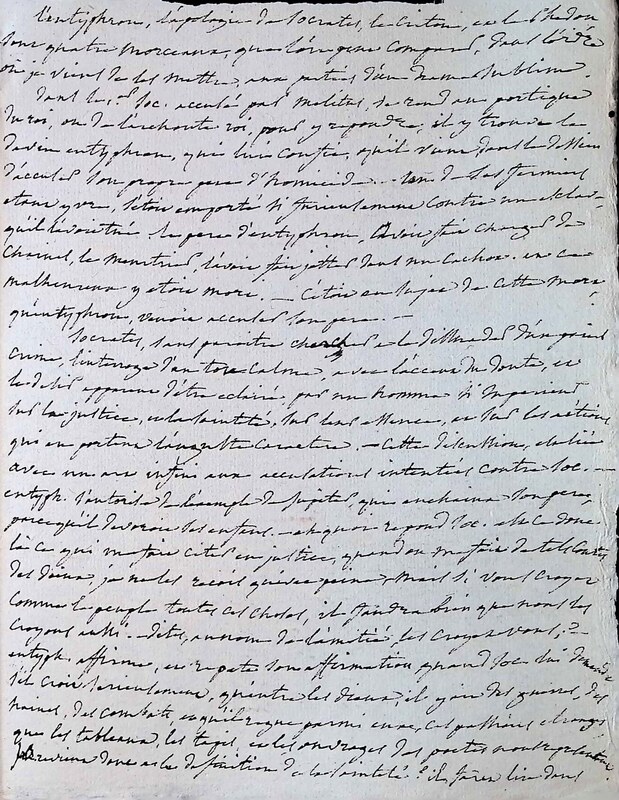 l'entyphron, l'apologie de Socrates, le criton, et le Phedon
sont quatre morceaux, que l'on peut comparer, dans l'ordre
où je viens de les mettre, aux parties d'un drame sublime.
dans le 1er Soc. accusé par Melitus, se rend au portique
du roi, ou de l'archonte roi, pour y repondre, il y trouve le
devin entyphron, qui lui confie, qu'il vient dans le dessein
d'accuser son propre pere d'homicide. - un de ses fermiers
etant yvre, s'etoit emporté si furieusement contre un esclave
qu'il l'avoit tué. le pere d'entyphron, avoit fait charger de
chaines, le meurtrier, l'avoit fait jetter dans un cachot. et ce
malheureux y etoit mort. - C'etoit au sujet de cette mort
qu'entyphron, venoit accuser son pere. -
Socrates, sans paroitre chercher a le dissuader d'un pareil
crime, l'interroge d'un ton calme, avec l'accent du doute, et
le desir apparent d'etre eclairé, par un homme si
sur la justice, et la sainteté, sur leur essence, et sur les actions
qui en portent l'auguste caractere. - Cette discussion, est liée
avec un art infini aux accusations intentées contre Soc. -
entyph. s'autorise de l'exemple de Jupiter, qui enchaina son pere,
parce qu'il devoroit ses enfans. - eh quoi repond Soc. est ce donc
là ce qui me fait citer en justice, quand on me fait de tels contes
des dieux, je ne les reçoit qu'avec peine, mais si vous croyez
comme le peuple toutes ces choses, il faudra bien que nous les
croyons aussi. - dites, au nom de l'amitié, les croyez vous, ? -
entyph. affirme, et repete son affirmation quand Soc. lui demande
s'il croit serieusement, qu'entre les dieux, il y ait des guerres, des
haines, des combats, et qu'il regne parmi eux, ces passions etranges
que les tableaux, les tapis, et les ouvrages des poetes nous representent.
donc a la definition de la sainteté ? il dans